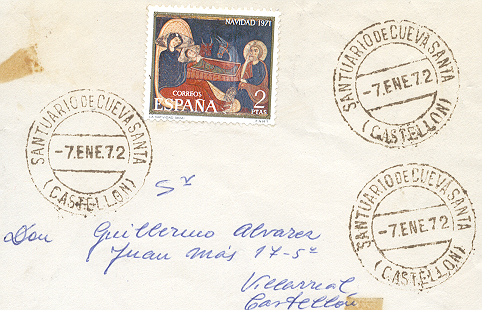 NAVIDAD 1971
CORREOS
ESPAÑA
2
PTAS
SANTUARIO DE CUEVA SANTA
-7.ENE.72
(CASTELLON)
SANTUARIO DE CUEVA SANTA
-7.ENE.72
(CASTELLON)
SANTUARIO DE CUEVA SANTA
-7.ENE.72
(CASTELLON)
Sr
Don Guillermo Alvarez
Juan Más 17-5º
Villarreal
Castellón